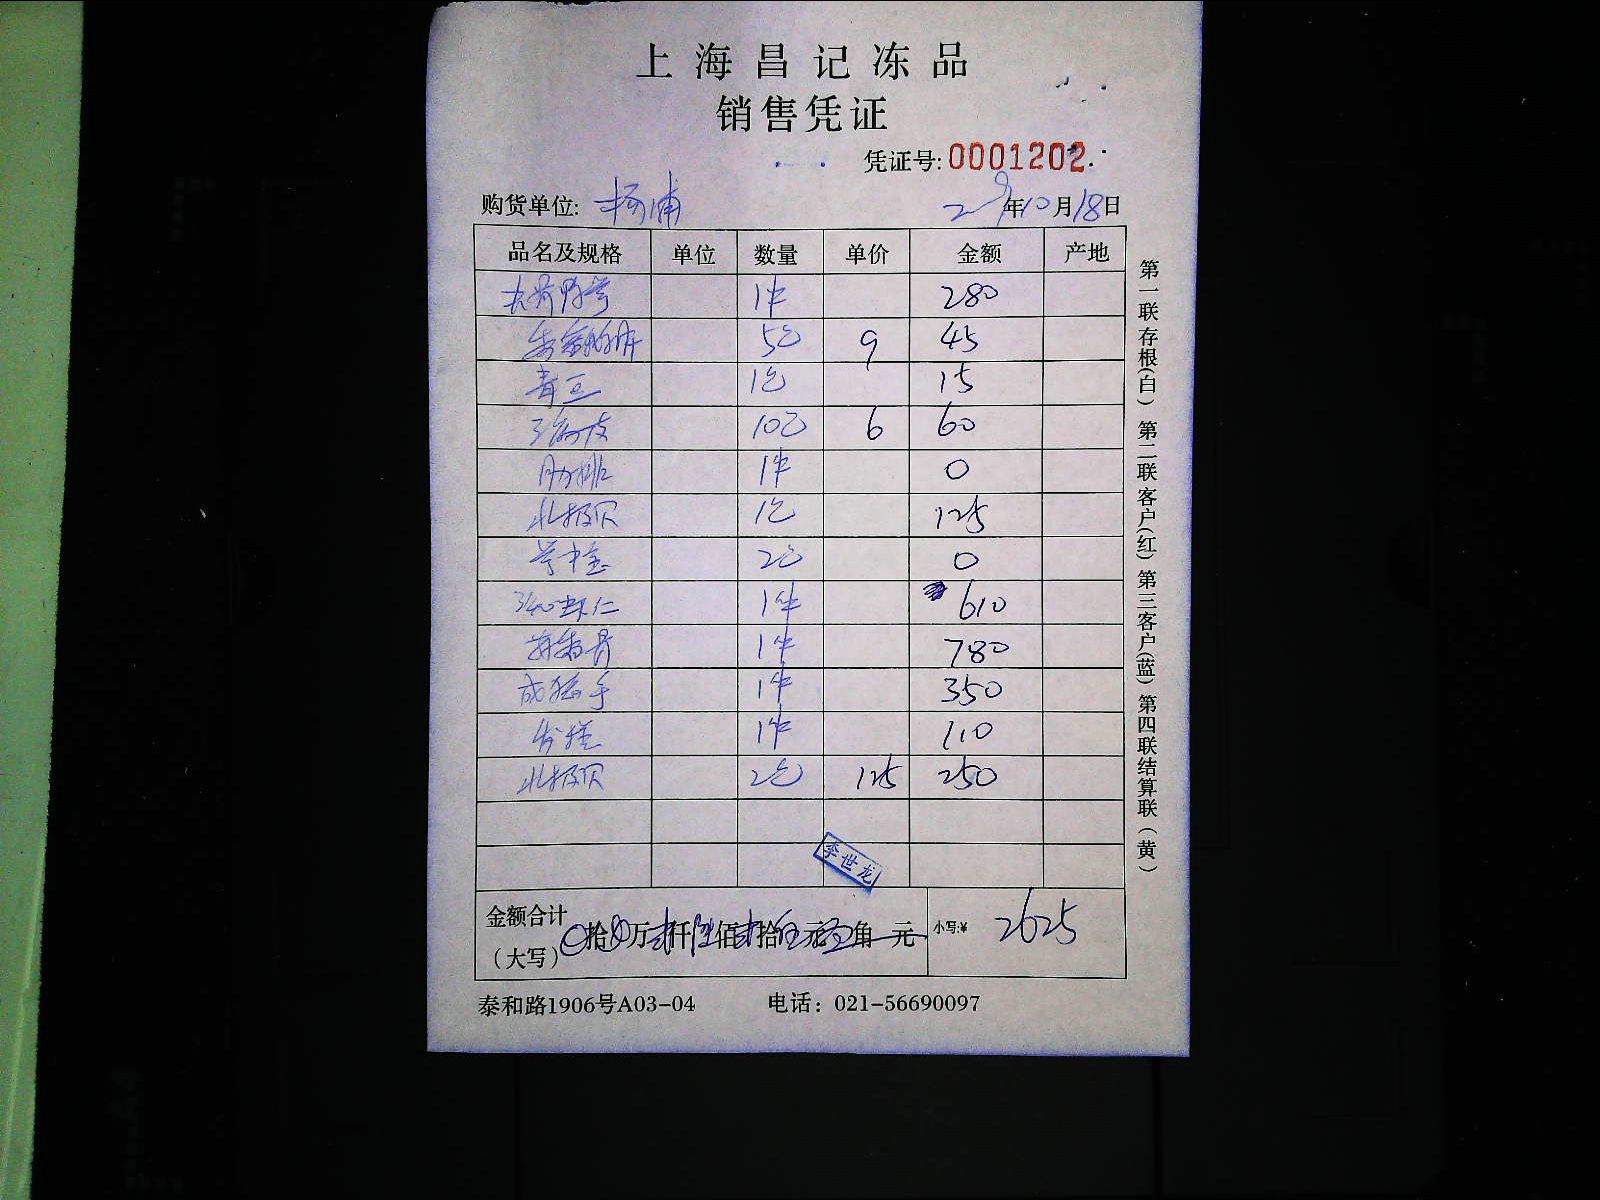 上海昌记冻品
销售凭证
凭证号:0001202
购货单位: 杨浦 年10月18日
品名及规格 单位 数量 单价 金额 产地
1件 280
5包 9 45
青豆 1包 15
10包 6 60
肋排 1件 0
北极贝 1包 125
2包 0
虾仁 1件 610
1件 780
1件 350
1件 110
北极贝 2包 125 250
李世龙
金额合计
(大写) 拾 万 仟 佰 拾 元 角 元 小写:¥ 2625
泰和路1906号A03-04 电话: 021-56690097
第一联存根(白) 第二联客户(红) 第三客户(蓝) 第四联结算联(黄)